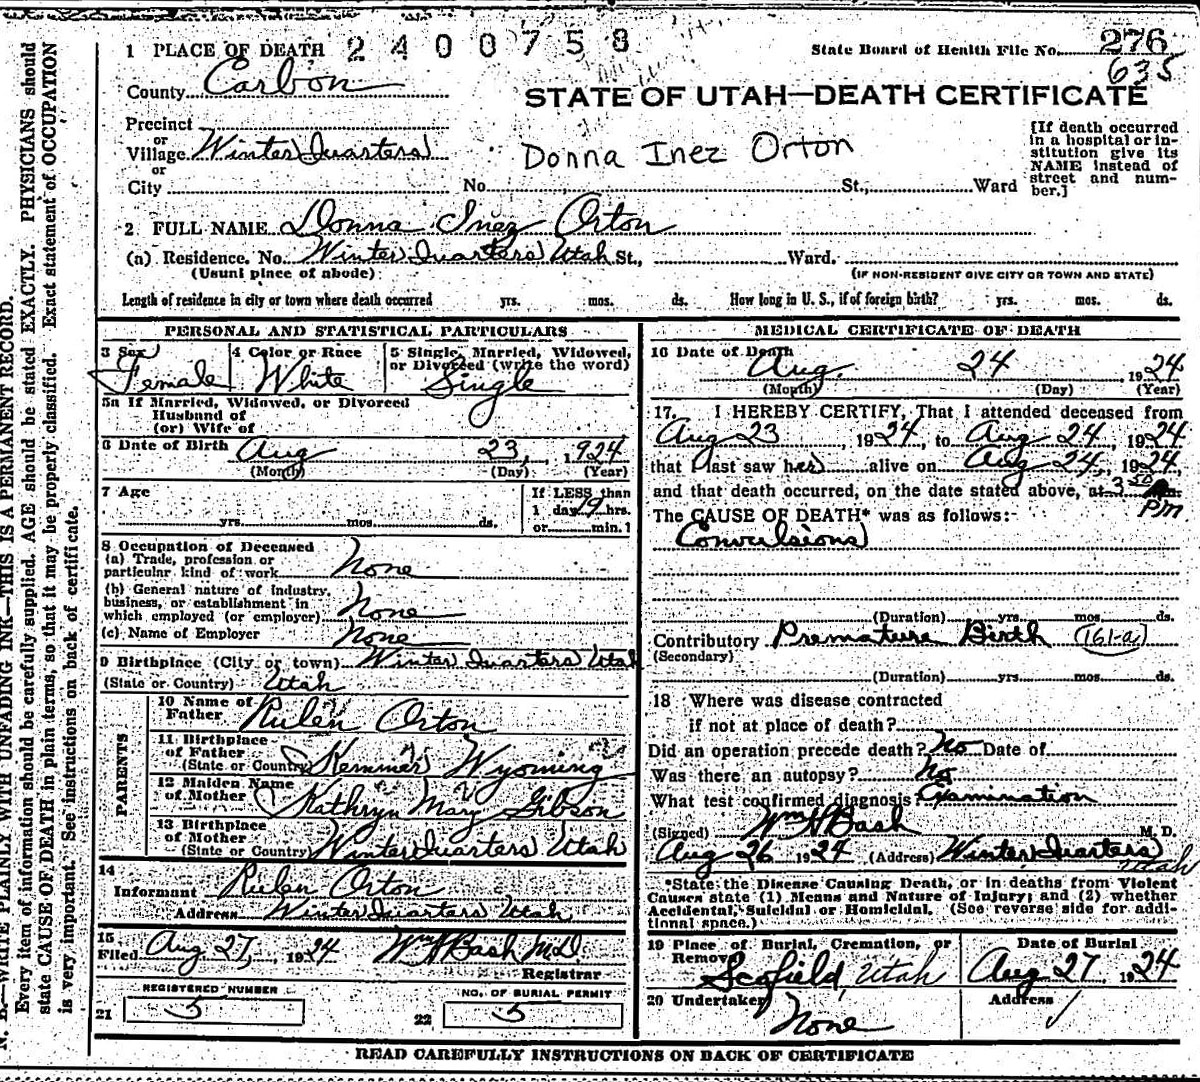 N. B.—WRITE PLAINLY WITH UNFADING INK—THIS IS A PERMANENT RECORD.
Every item of information should be carefully supplied. AGE should be stated EXACTLY. PHYSICIANS should
state CAUSE OF DEATH in plain terms, so that it may be properly classified. Exact statement of OCCUPATION
is very important. See instructions on back of certificate.
1 PLACE OF DEATH 2400758
State Board of Health File No. 276
635
County Carbon
STATE OF UTAH—DEATH CERTIFICATE
Precinct
or
Village Winter Quarters
or
City
Donna Inez Orton
No. St., Ward
[If death occurred
in a hospital or in-
stitution give its
NAME instead of
street and num-
ber.]
2 FULL NAME Donna Inez Orton
(a) Residence. No. Winter Quarters Utah St., Ward.
(Usual place of abode)
(IF NON-RESIDENT GIVE CITY OR TOWN AND STATE)
Length of residence in city or town where death occurred yrs. mos. ds. How long in U. S., if of foreign birth? yrs. mos. ds.
PERSONAL AND STATISTICAL PARTICULARS
3 Sex
Female
4 Color or Race
White
5 Single, Married, Widowed,
or Divorced (write the word)
Single
5a If Married, Widowed, or Divorced
Husband of
(or) Wife of
6 Date of Birth Aug 23, 1924
(Month) (Day) (Year)
7 Age
yrs. mos. ds.
If LESS than
1 day 19 hrs.
or min.
8 Occupation of Deceased
(a) Trade, profession or
particular kind of work None
(b) General nature of industry,
business, or establishment in
which employed (or employer) None
(c) Name of Employer None
9 Birthplace (City or town) Winter Quarters Utah
(State or Country) Utah
PARENTS
10 Name of
Father Rulen Orton
11 Birthplace
of Father
(State or Country) Kemmer Wyoming
12 Maiden Name
of Mother Kathryn Mary Gibson
13 Birthplace of
Mother
(State or Country) Winter Quarters Utah
14
Informant Rulen Orton
Address Winter Quarters Utah
15
Filed Aug 27, 1924 Wm H Bash M.D.
Registrar
REGISTERED NUMBER
21 5
NO. OF BURIAL PERMIT
22 5
MEDICAL CERTIFICATE OF DEATH
16 Date of Death
Aug. 24 1924
(Month) (Day) (Year)
17. I HEREBY CERTIFY, That I attended deceased from
Aug 23, 1924, to Aug 24, 1924
that I last saw her alive on Aug 24, 1924,
and that death occurred, on the date stated above, at 3 30
PM
The CAUSE OF DEATH* was as follows:
Convulsions
(Duration) yrs. mos. ds.
Contributory Premature Birth (161-a)
(Secondary)
(Duration) yrs. mos. ds.
18 Where was disease contracted
if not at place of death?
Did an operation precede death? No Date of
Was there an autopsy? No
What test confirmed diagnosis? Examination
(Signed) Wm H Bash M. D.
Aug 26 1924 (Address) Winter Quarters
Utah
*State the Disease Causing Death, or in deaths from Violent
Causes state (1) Means and Nature of Injury; and (2) whether
Accidental, Suicidal or Homicidal. (See reverse side for addi-
tional space.)
19 Place of Burial, Cremation, or
Removal
Scofield, Utah
Date of Burial
Aug 27 1924
20 Undertaker
None
Address
READ CAREFULLY INSTRUCTIONS ON BACK OF CERTIFICATE